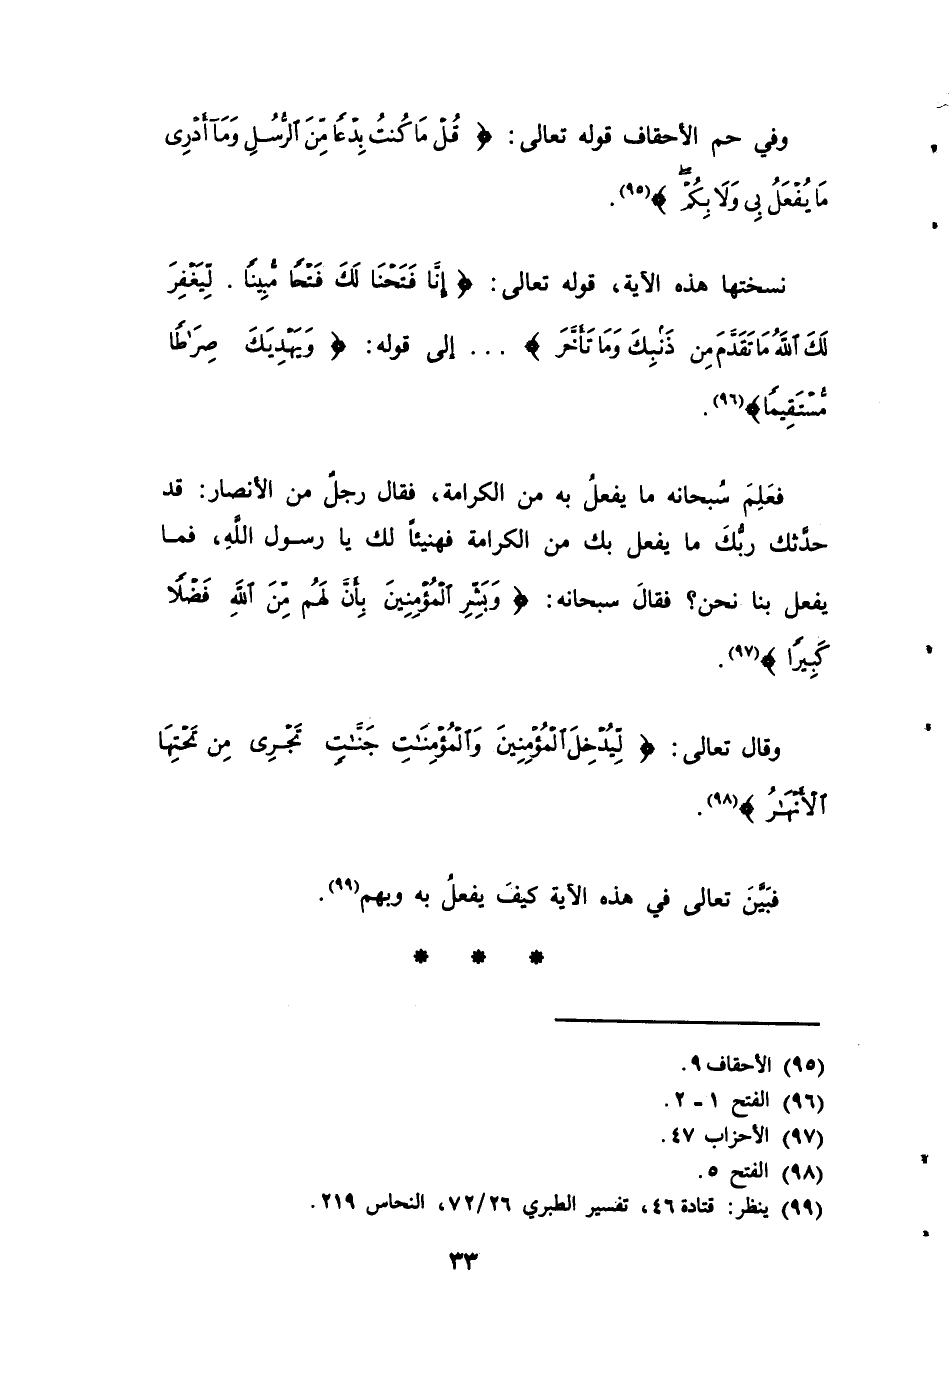 وفي حم الأحقاف قوله تعالى: ﴿ قُلْ مَا كُنتُ بِدْعًا مِّنَ ٱلرُّسُلِ وَمَآ أَدْرِى
مَا يُفْعَلُ بِى وَلَا بِكُمْ ۖ ﴾(٩٥).
نسختها هذه الآية، قوله تعالى: ﴿ إِنَّا فَتَحْنَا لَكَ فَتْحًا مُّبِينًا . لِّيَغْفِرَ
لَكَ ٱللَّهُ مَا تَقَدَّمَ مِن ذَنۢبِكَ وَمَا تَأَخَّرَ ﴾ ... إلى قوله: ﴿ وَيَهْدِيَكَ صِرَٰطًا
مُّسْتَقِيمًا﴾(٩٦).
فعَلِمَ سُبحانه ما يفعلُ به من الكرامة، فقال رجلٌ من الأنصار: قد
حدَّثك ربُّكَ ما يفعل بك من الكرامة فهنيئاً لك يا رسول اللَّهِ، فما
يفعل بنا نحن؟ فقالَ سبحانه: ﴿ وَبَشِّرِ ٱلْمُؤْمِنِينَ بِأَنَّ لَهُم مِّنَ ٱللَّهِ فَضْلًا
كَبِيرًا ﴾(٩٧).
وقال تعالى: ﴿ لِّيُدْخِلَ ٱلْمُؤْمِنِينَ وَٱلْمُؤْمِنَٰتِ جَنَّٰتٍ تَجْرِى مِن تَحْتِهَا
ٱلْأَنْهَٰرُ ﴾(٩٨).
فبَيَّنَ تعالى في هذه الآية كيفَ يفعلُ به وبهم(٩٩).
* * *
(٩٥) الأحقاف ٩.
(٩٦) الفتح ١ - ٢.
(٩٧) الأحزاب ٤٧.
(٩٨) الفتح ٥.
(٩٩) ينظر: قتادة ٤٦، تفسير الطبري ٧٢/٢٦، النحاس ٢١٩.
٣٣